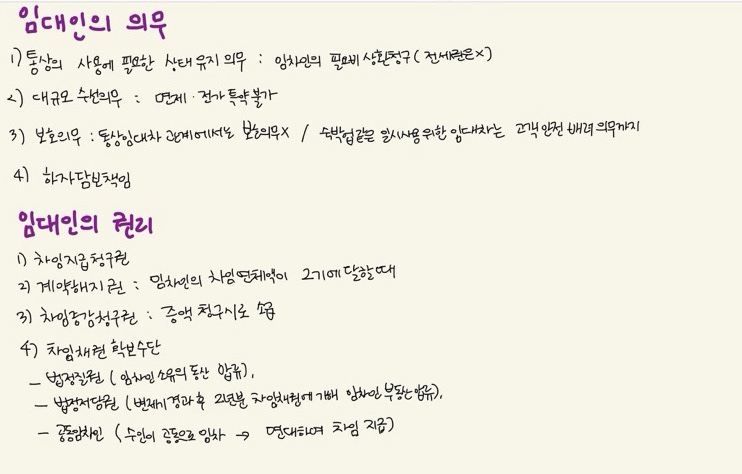 임대인의 의무
1) 통상의 사용에 필요한 상태 유지 의무 : 임차인의 필요비 상환청구 (전세권은 x)
2) 대규모 수선의무 : 면제·전가 특약 불가
3) 보호의무 : 통상임대차 관계에서는 보호의무x / 숙박업같은 일시사용 위한 임대차는 고객 안전 배려 의무까지
4) 하자담보책임
임대인의 권리
1) 차임지급청구권
2) 계약해지권 : 임차인의 차임연체액이 2기에 달할 때
3) 차임증감청구권 : 증액 청구시로 소급
4) 차임채권 확보수단
- 법정질권 (임차인 소유의 동산 압류),
- 법정저당권 (변제기 경과 후 2년분 차임채권에 기해 임차인 부동산 압류),
- 공동임차인 (수인이 공동으로 임차 → 연대하여 차임 지급)